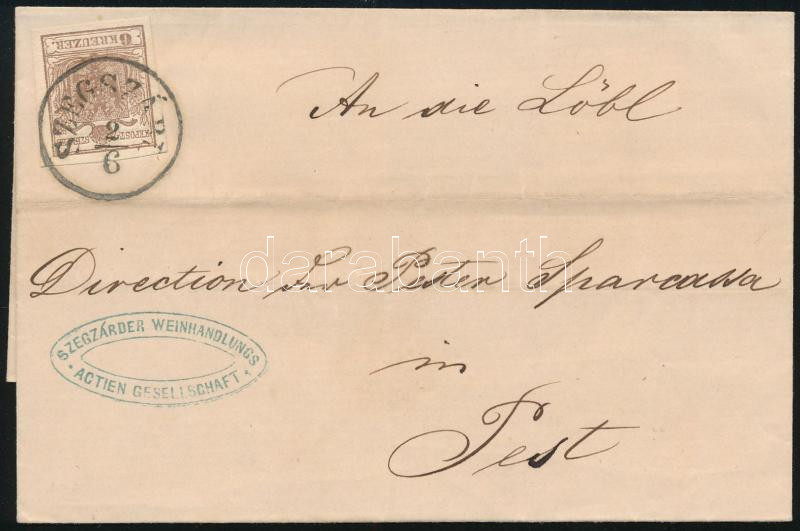 6 KREUZER
KKPOST-STEMPEL
SZEGSZÁRD
2
6
An die Löbl
Direction der Pester Sparcassa
in
Pest
SZEGZÁRDER WEINHANDLUNGS
ACTIEN GESELLSCHAFT
darabanth